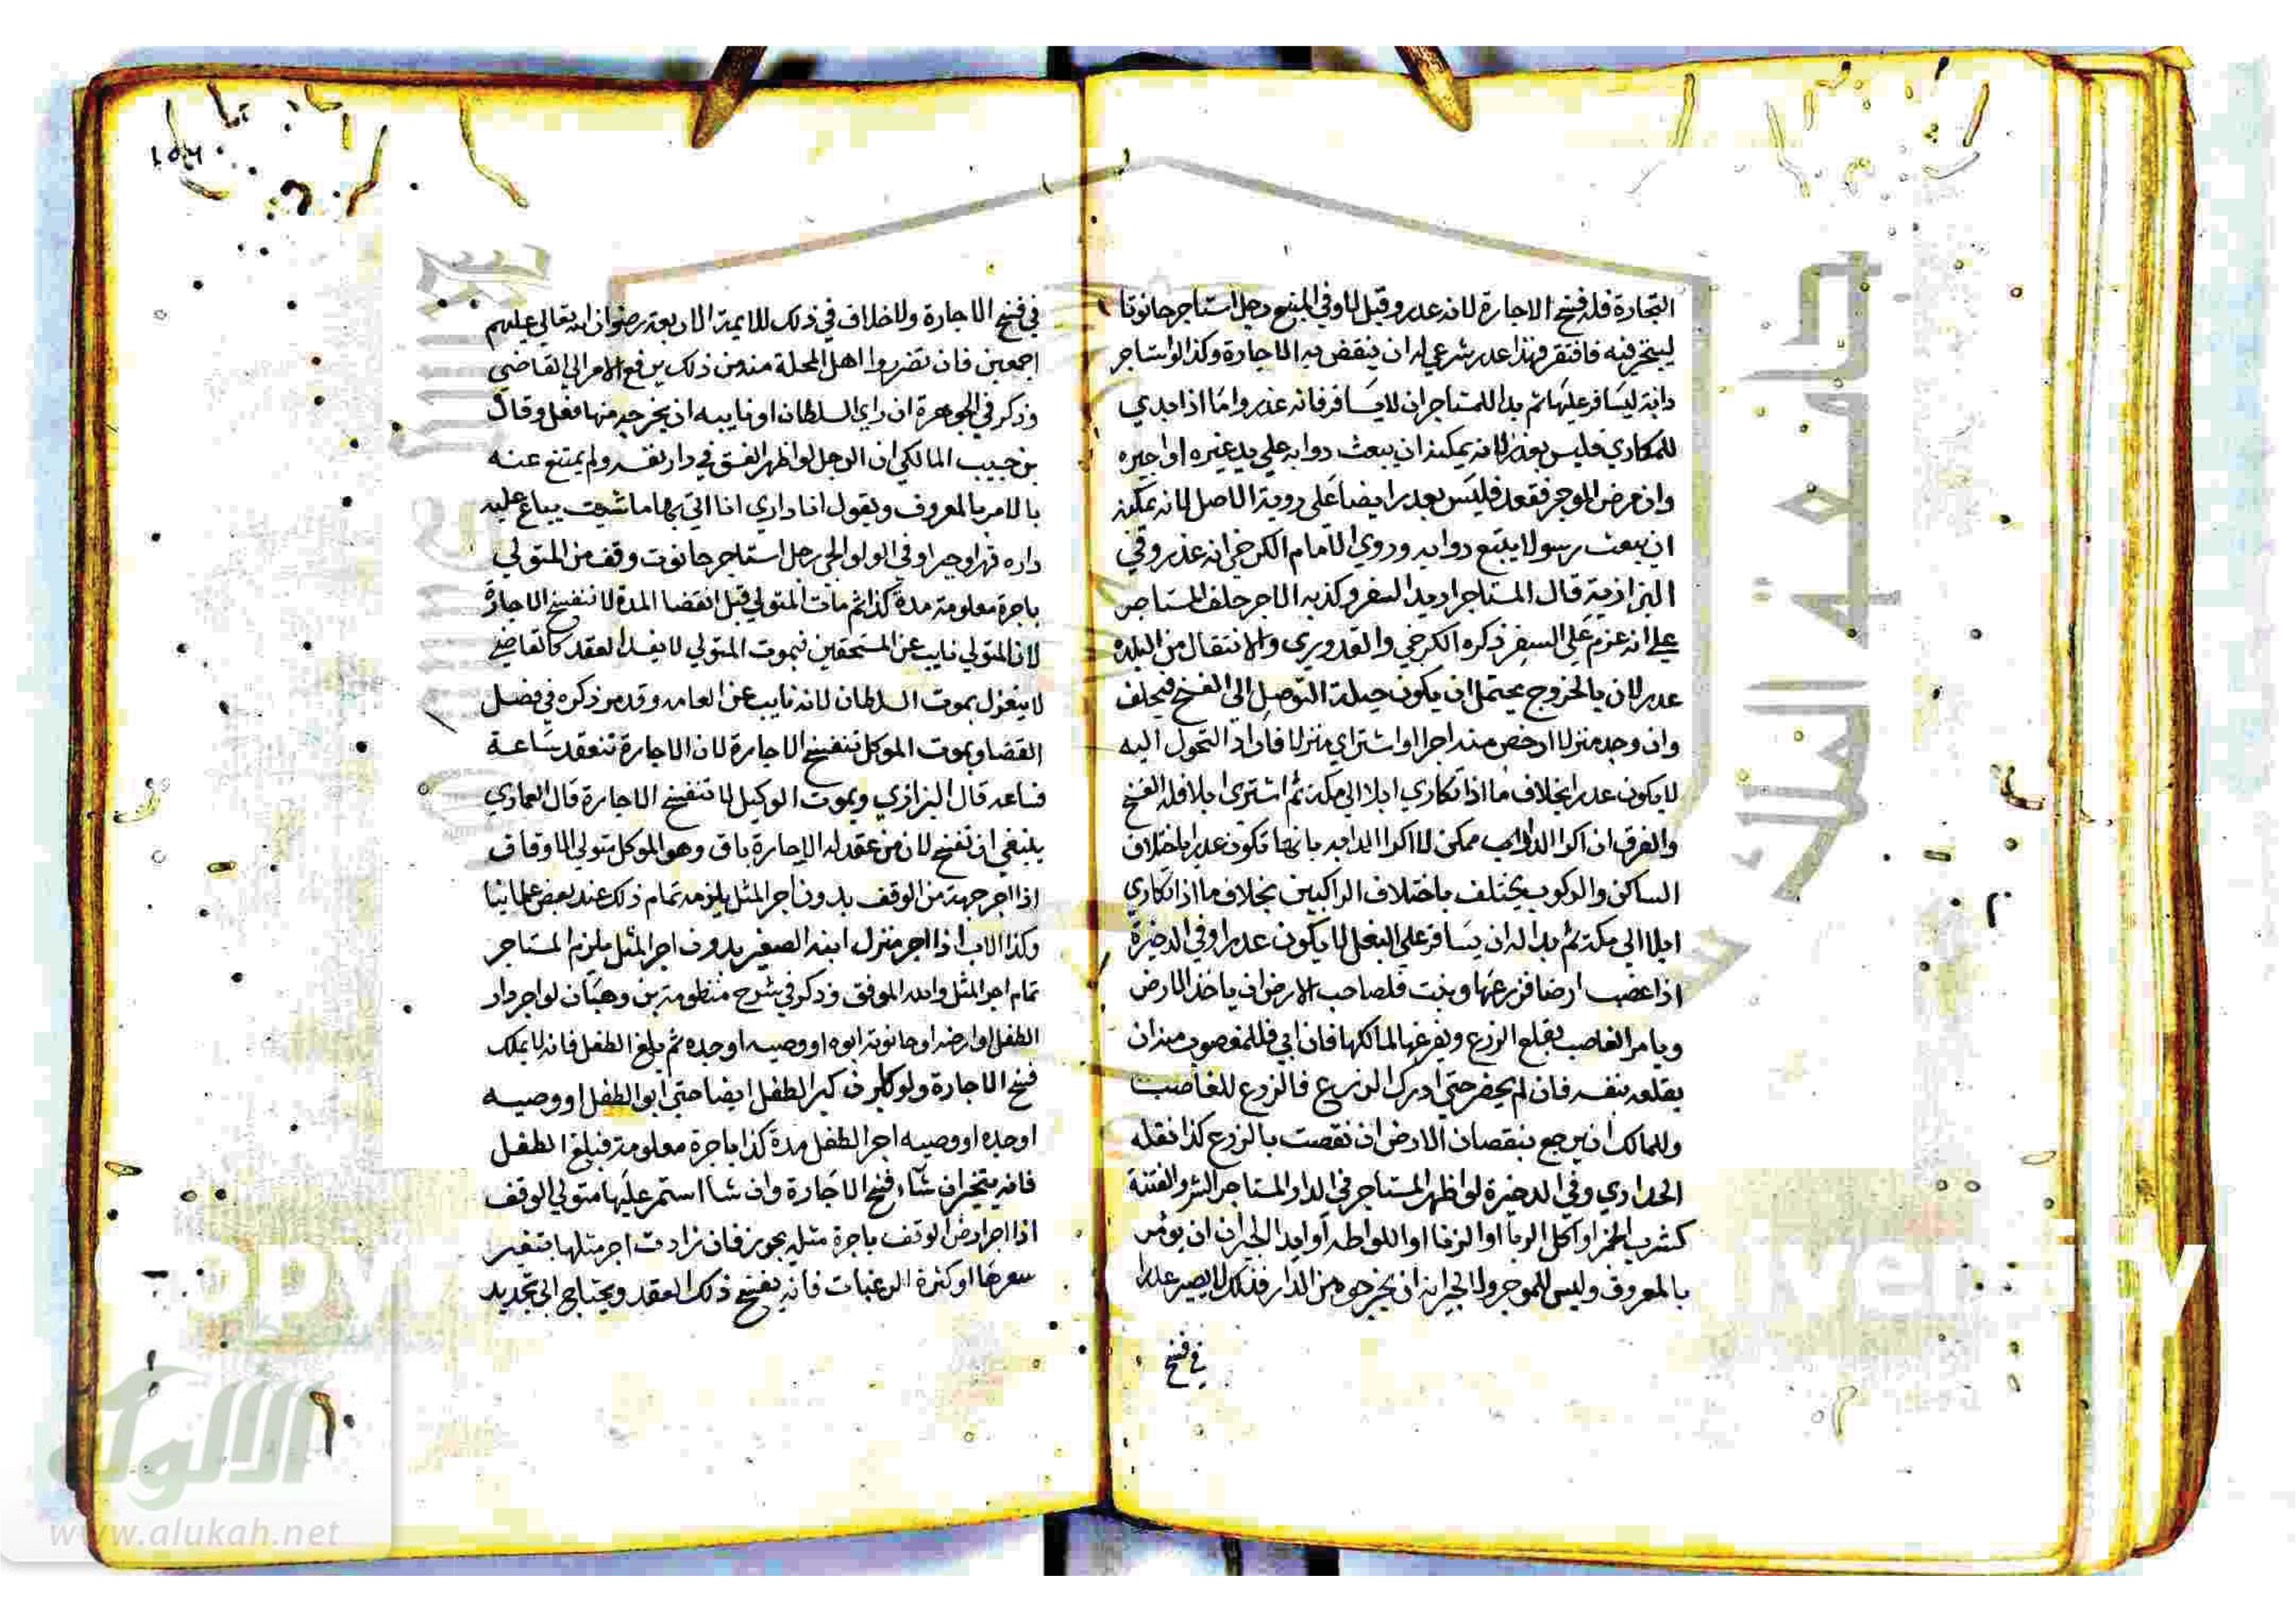 التجارة فله فسخ الاجارة لانه عدر وقيل لا وفي المنبع رجل استاجر حانوتا
ليتجر فيه فافتقر فهذا عدر شرعي له ان ينقض به الاجارة وكذا لو استاجر
دابة ليسافر عليها ثم بدا للمستاجر ان لا يسافر فانه عذر واما اذا بدي
للمكاري فليس بعذر لانه يمكنه ان يبعث دوابه علي يد غيره او اجيره
وان مرض الموجر فقعد فليس بعدر ايضا علي رواية الاصل لانه يمكنه
ان يبعث رسولا يتبع دوابه وروي الامام الكرخي انه عذر وفي
البزازية قال المستاجر اريد السفر وكذبه الاجر حلف المستاجر
علي انه عزم علي السفر ذكره الكرخي والقدوري والانتقال من البلده
عدر لان بالخروج يحتمل ان يكون حيلة التوصل الي الفسخ فيحلف
وان وجد منزلا ارخص منه اجرا او اشتراي منزلا فاراد التحول اليه
لا يكون عدرا بخلاف ما اذا تكاري ابلا الي مكة ثم اشتري ابلا فله الفسخ
والفرق ان اكرا الدواب ممكن لا اكرا الدابه بانها تكون عدرا باختلاف
الساكن والركوب يختلف باختلاف الراكبين بخلاف ما اذا تكاري
ابلا الي مكة ثم بدا له ان يسافر علي البغل لا يكون عدرا وفي الدخيرة
اذا غصب ارضا فزرعها ونبت فلصاحب الارض ان ياخذ الارض
ويامر الغاصب بقلع الزرع ويفرغها لمالكها فان ابي فللمغصوب منه ان
يقلعه بنفسه فان لم يحضر حتي ادرك الزرع فالزرع للغاصب
وللمالك ان يرجع بنقصان الارض ان نقصت بالزرع كذا نقله
الحدادي وفي الدخيرة لو اظهر المستاجر في الدار المستاجر الشر والفتنة
كشرب الخمر او اكل الربا او الزنا او اللواطه او ايدا الجيران ان يومر
بالمعروف وليس للموجر ولا الجيران ان يخرجوه من الدار فذلك لا يصير عدرا
في فسخ
في فسخ الاجارة ولا خلاف في ذلك للايمة الاربعة رضوان الله تعالي عليهم
اجمعين فان تضرروا اهل المحلة منه من ذلك يرفع الامر الي القاضي
وذكر في الجوهرة ان راي السلطان او نايبه ان يخرجه منها فعل وقال
بن حبيب المالكي ان الرجل لو اظهر الفسق في دار نفسه ولم يمتنع عنه
بالامر بالمعروف ويقول انا داري انا اتي بها ما شيت يباع عليه
داره قهرا وجبرا وفي الولوالجي رجل استاجر حانوت وقف من المتولي
باجرة معلومة مدة كذا ثم مات المتولي قبل انقضا المدة لا تنفسخ الاجارة
لان المتولي نايب عن المستحقين فبموت المتولي لا يفسد العقد كالقاضي
لا ينعزل بموت السلطان لانه نايب عن العامه وقد مر ذكره في فصل
القضا وبموت الموكل تنفسخ الاجارة لان الاجارة تنعقد ساعة
فساعه قال البزازي وبموت الوكيل لا تنفسخ الاجارة قال العمادي
ينبغي ان تفسخ لان من عقد له الاجارة باق وهو الموكل متولي الاوقاف
اذا اجر جهة من الوقف بدون اجر المثل يلزمه تمام ذلك عند بعض علمائنا
وكذا الاب اذا اجر منزل ابنه الصغير بدون اجر المثل يلزم المستاجر
تمام اجر المثل والله الموفق وذكر في شرح منظومة بن وهبان لو اجر دار
الطفل او ارضه او حانوته ابوه او وصيه او جده ثم بلغ الطفل فانه لا يملك
فسخ الاجارة ولو كبر الطفل ايضا حتي ابو الطفل او وصيه
او جده او وصيه اجر الطفل مدة كذا باجرة معلومة فبلغ الطفل
فانه يتخير ان شاء فسخ الاجارة وان شا استمر عليها متولي الوقف
اذا اجر ارض الوقف باجرة مثله يجوز فان زادت اجر مثلها بتغير
سعرها او كثرة الرغبات فانه يفسخ ذلك العقد ويحتاج الي تجديد
جامعة الملك
الألوكة
www.alukah.net